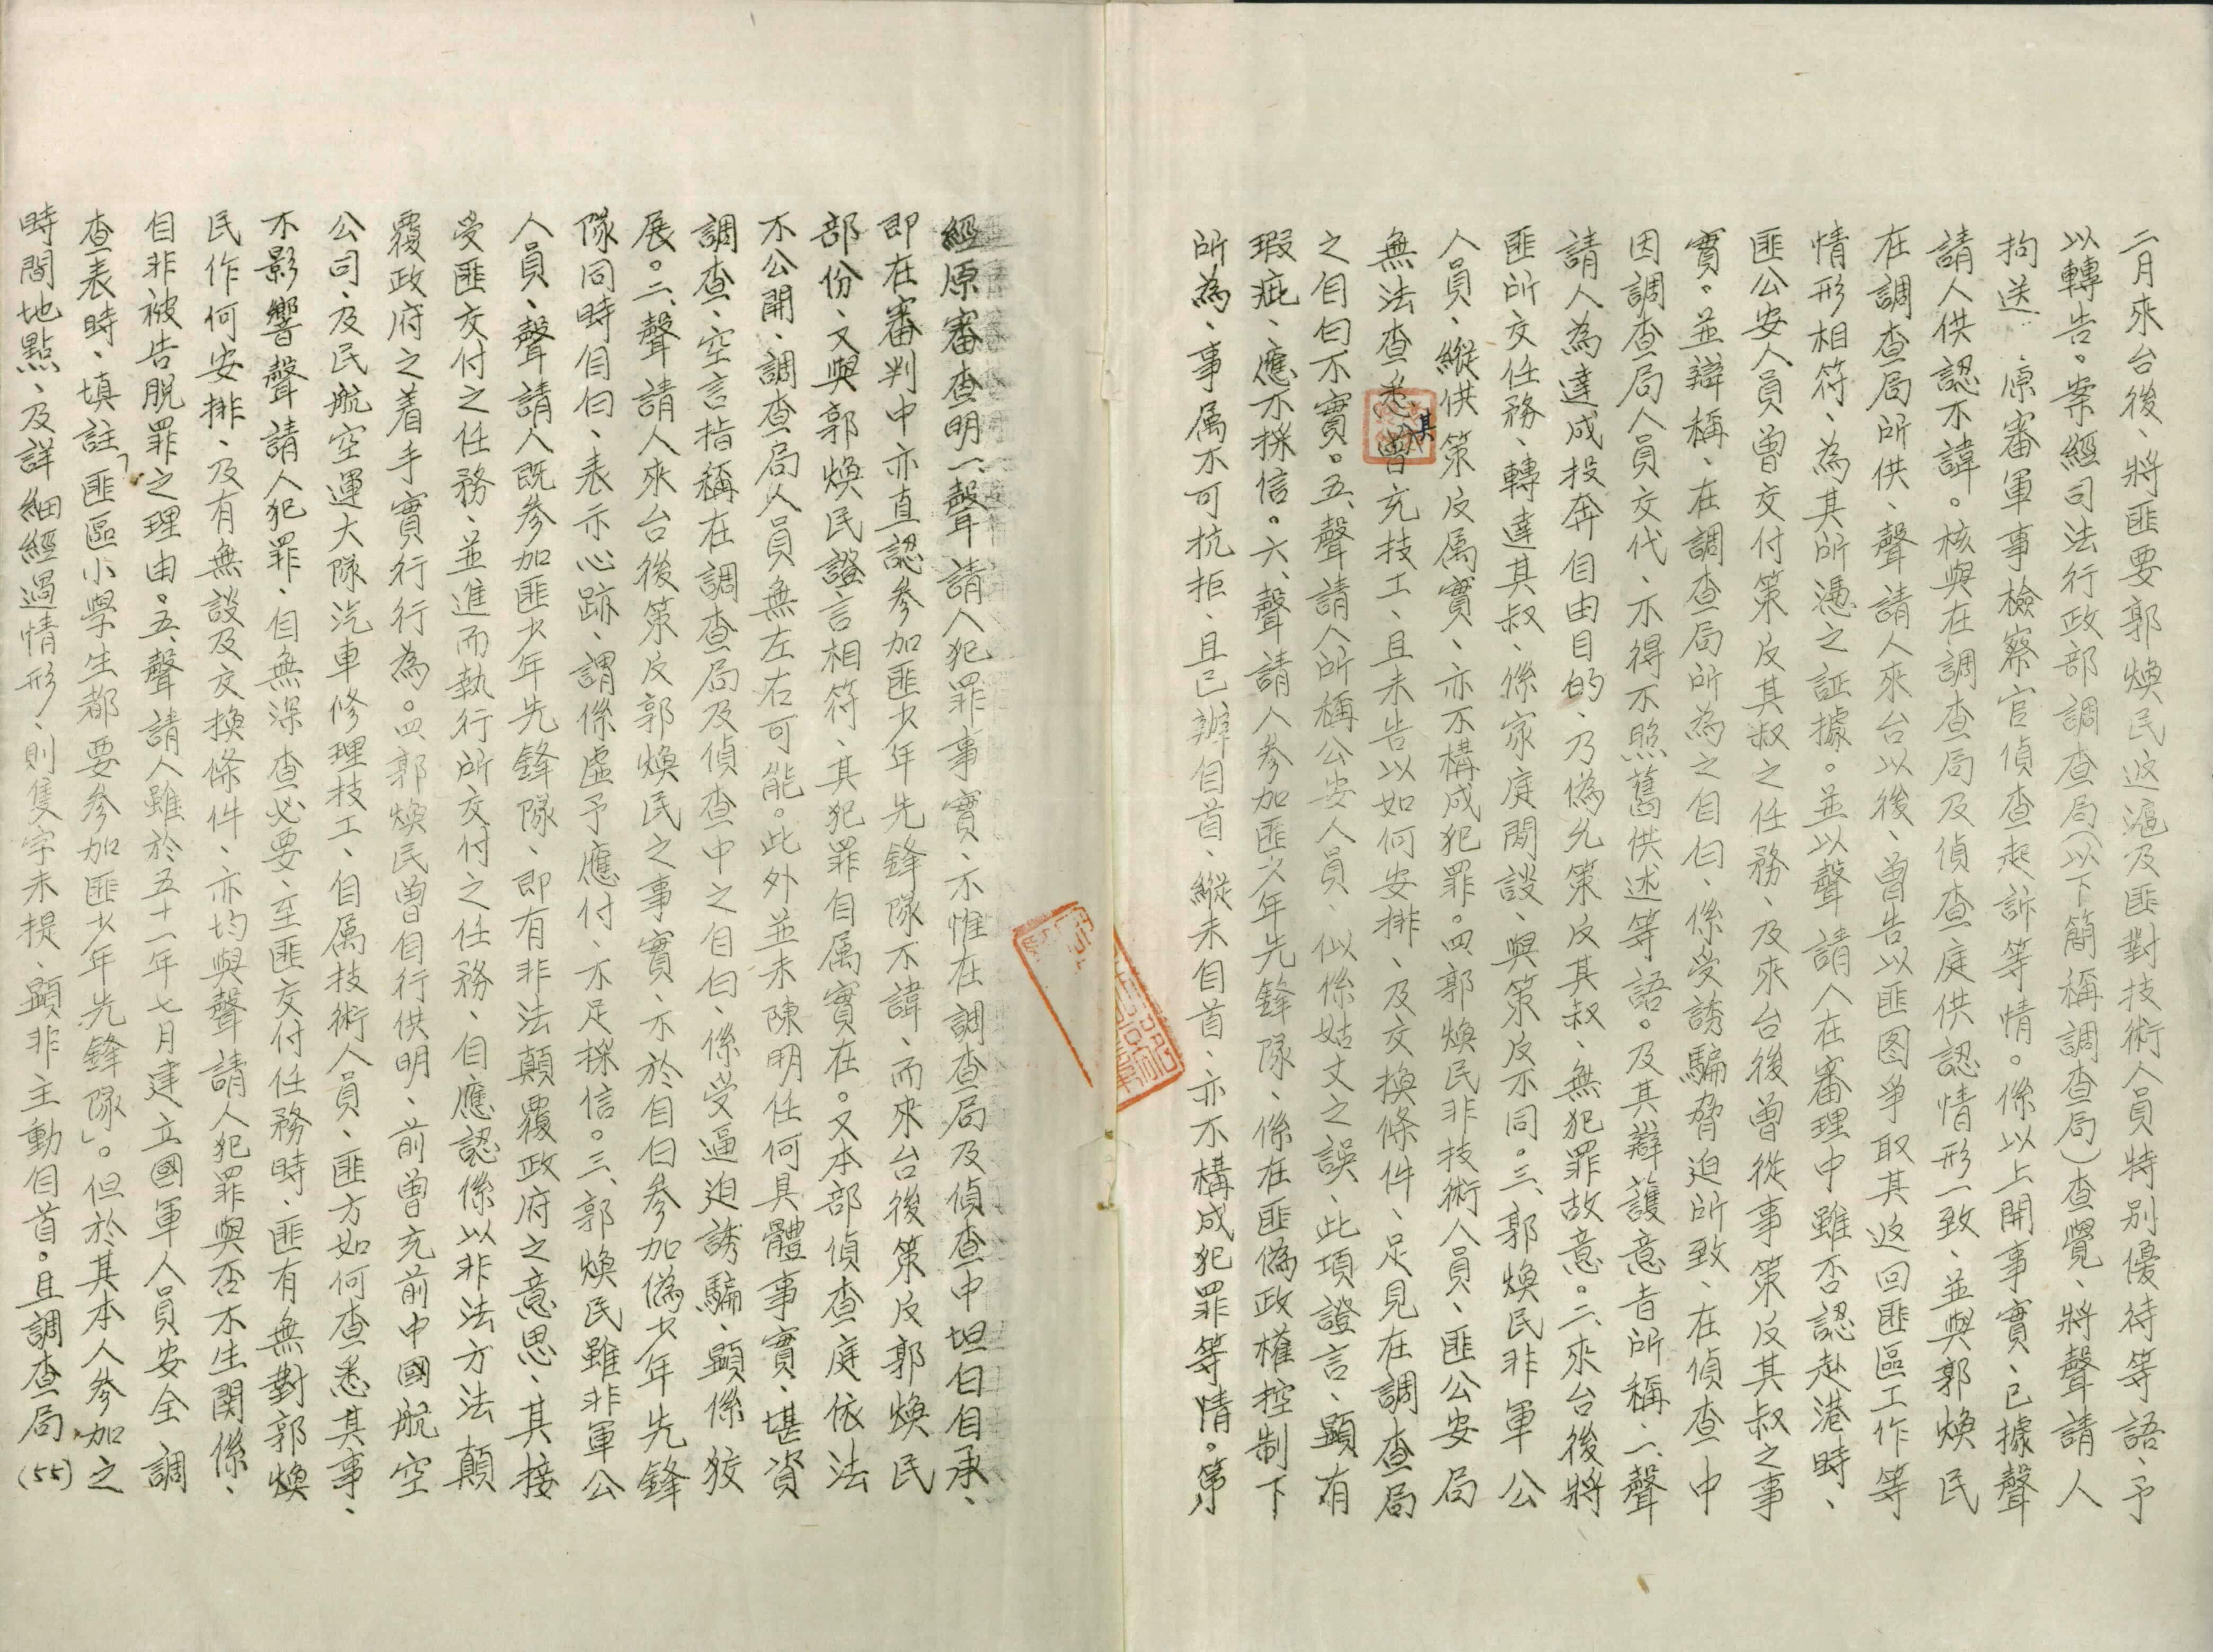 二月來台後、將匪要郭煥民返滬及匪對技術人員特別優待等語、予
以轉告。案經司法行政部調查局(以下簡稱調查局)查覺、將聲請人
拘送 原審軍事檢察官偵查起訴等情。係以上開事實、已據聲
請人供認不諱。核與在調查局及偵查庭供認情形一致、並與郭煥民
在調查局所供、聲請人來台以後、曾告以匪图爭取其返回匪區工作等
情形相符、為其所憑之証據。並以聲請人在審理中雖否認赴港時、
匪公安人員曾交付策反其叔之任務、及來台後曾從事策反其叔之事
實。並辯稱、在調查局所為之自白、係受誘騙脅迫所致、在偵查中
因調查局人員交代、不得不照舊供述等語。及其辯護意旨所稱、一、聲
請人為達成投奔自由目的、乃偽允策反其叔、無犯罪故意。二、來台後將
匪所交任務、轉達其叔、係家庭閒談、與策反不同。三、郭煥民非軍公
人員、縱供策反属實、亦不構成犯罪。四、郭煥民非技術人員、匪公安局
無法查悉其曾充技工、且未告以如何安排、及交換條件、足見在調查局
之自白不實。五、聲請人所稱公安人員、似係姑丈之誤、此項證言、顯有
瑕疵、應不採信。六、聲請人參加匪少年先鋒隊、係在匪偽政權控制下
所為、事属不可抗拒、且已辦自首、縱未自首、亦不構成犯罪等情。第
經原審查明一、聲請人犯罪事實、不惟在調查局及偵查中坦白自承、
即在審判中亦直認參加匪少年先鋒隊不諱、而來台後策反郭煥民
部份、又與郭煥民證言相符、其犯罪自属實在。又本部偵查庭依法
不公開、調查局人員無左右可能。此外並未陳明任何具體事實、堪資
調查、空言指稱在調查局及偵查中之自白、係受逼迫誘騙、顯係狡
展。二、聲請人來台後策反郭煥民之事實、不於自白參加偽少年先鋒
隊同時自白、表示心跡、謂係虛予應付、不足採信。三、郭煥民雖非軍公
人員、聲請人既參加匪少年先鋒隊、即有非法顛覆政府之意思、其接
受匪交付之任務、並進而執行所交付之任務、自應認係以非法方法顛
覆政府之着手實行行為。四、郭煥民曾自行供明、前曾充前中國航空
公司、及民航空運大隊汽車修理技工、自属技術人員、匪方如何查悉其事、
不影響聲請人犯罪、自無深查必要、至匪交付任務時、匪有無對郭煥
民作何安排、及有無談及交換條件、亦均與聲請人犯罪與否不生関係、
自非被告脱罪之理由。五、聲請人雖於五十一年七月建立國軍人員安全調
查表時、填註「匪區小學生都要參加匪少年先鋒隊」。但於其本人參加之
時間地點、及詳細經過情形、則隻字未提、顯非主動自首。且調查局
(55)